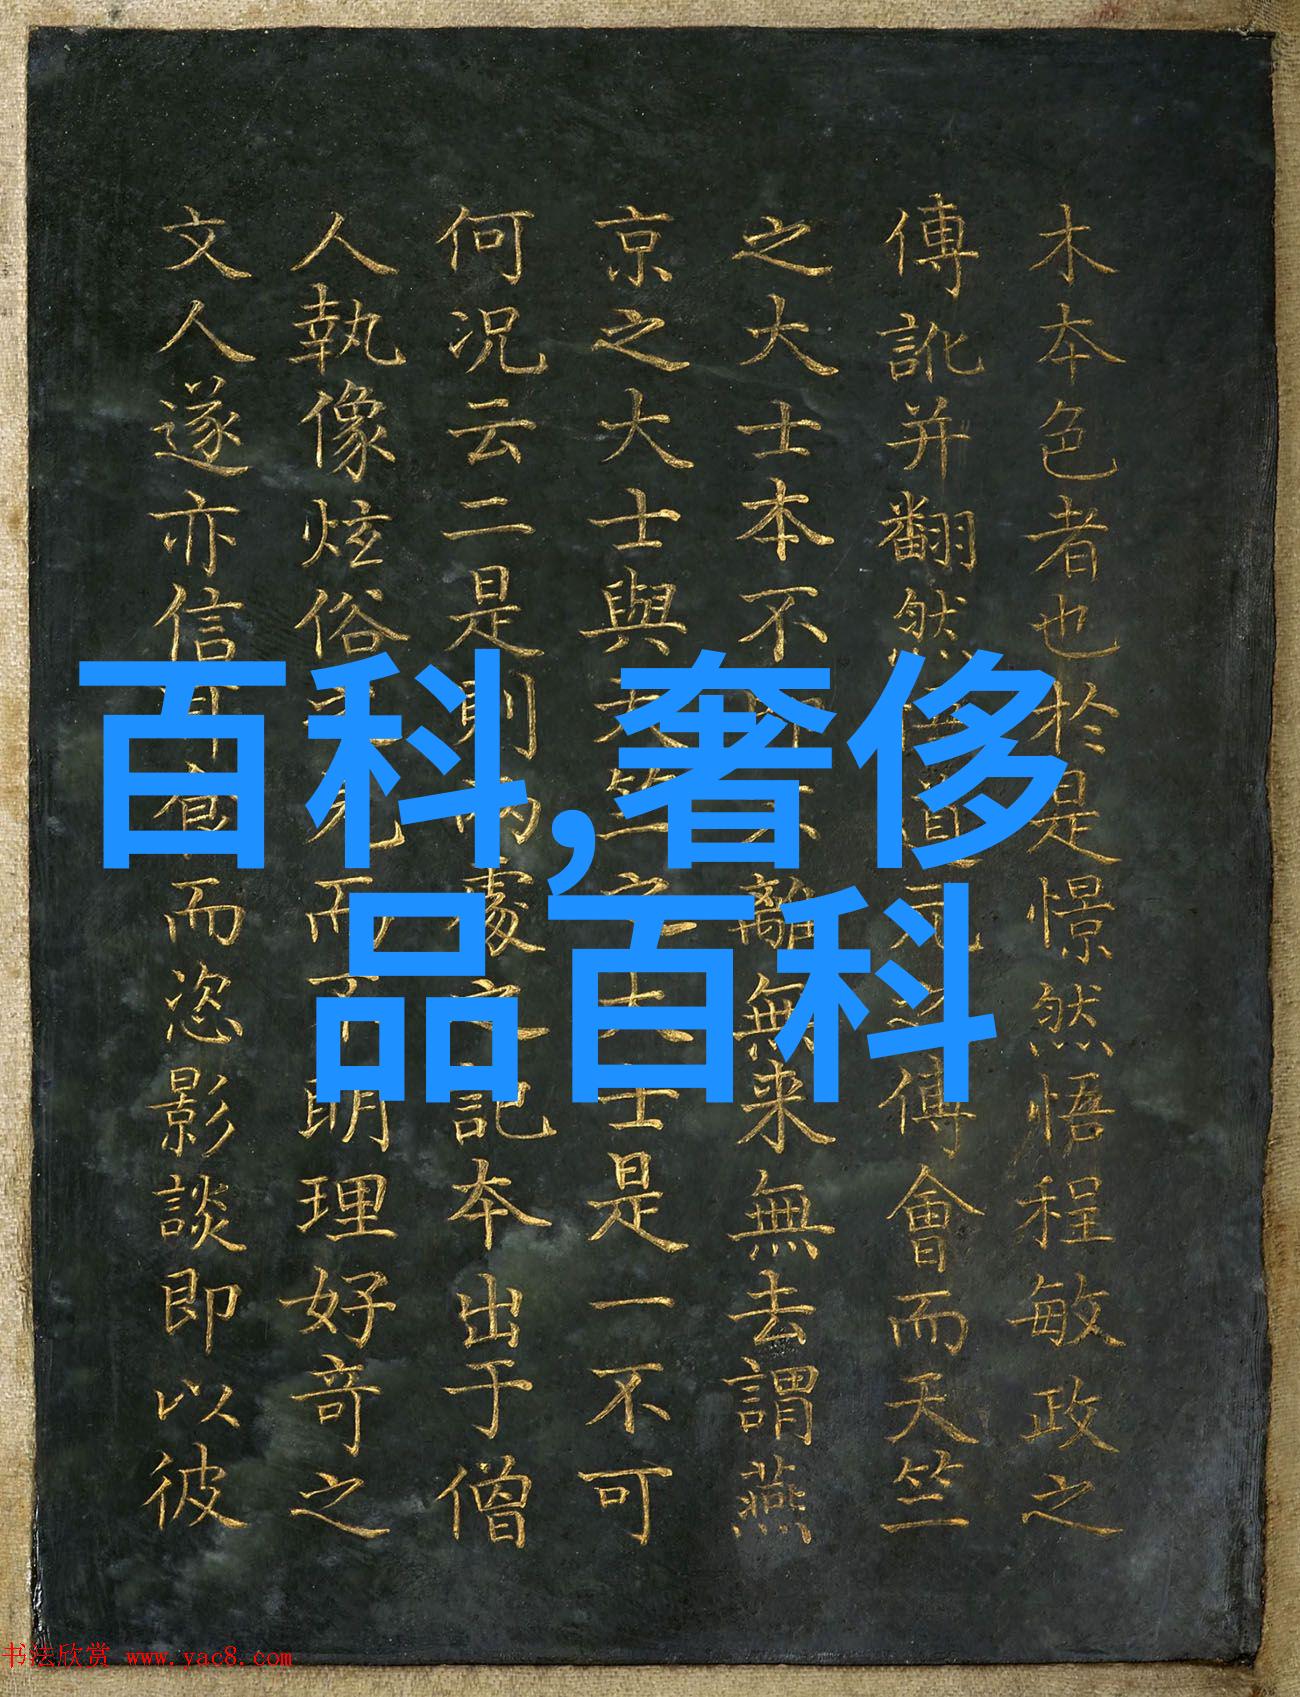 木本色者也於是憬然悟程敏政之
傳訛并翻然道元之傅會而天竺
之大士本不離無来無去謂燕
京之大士與天竺之大士是一不可
何况云二是則兩處之記本出于僧
人執像炫俗而不明理好奇之
文人遂亦信耳食而恣影談即以彼
百科,奢侈
品百科
书法欣赏 www.yac8.com